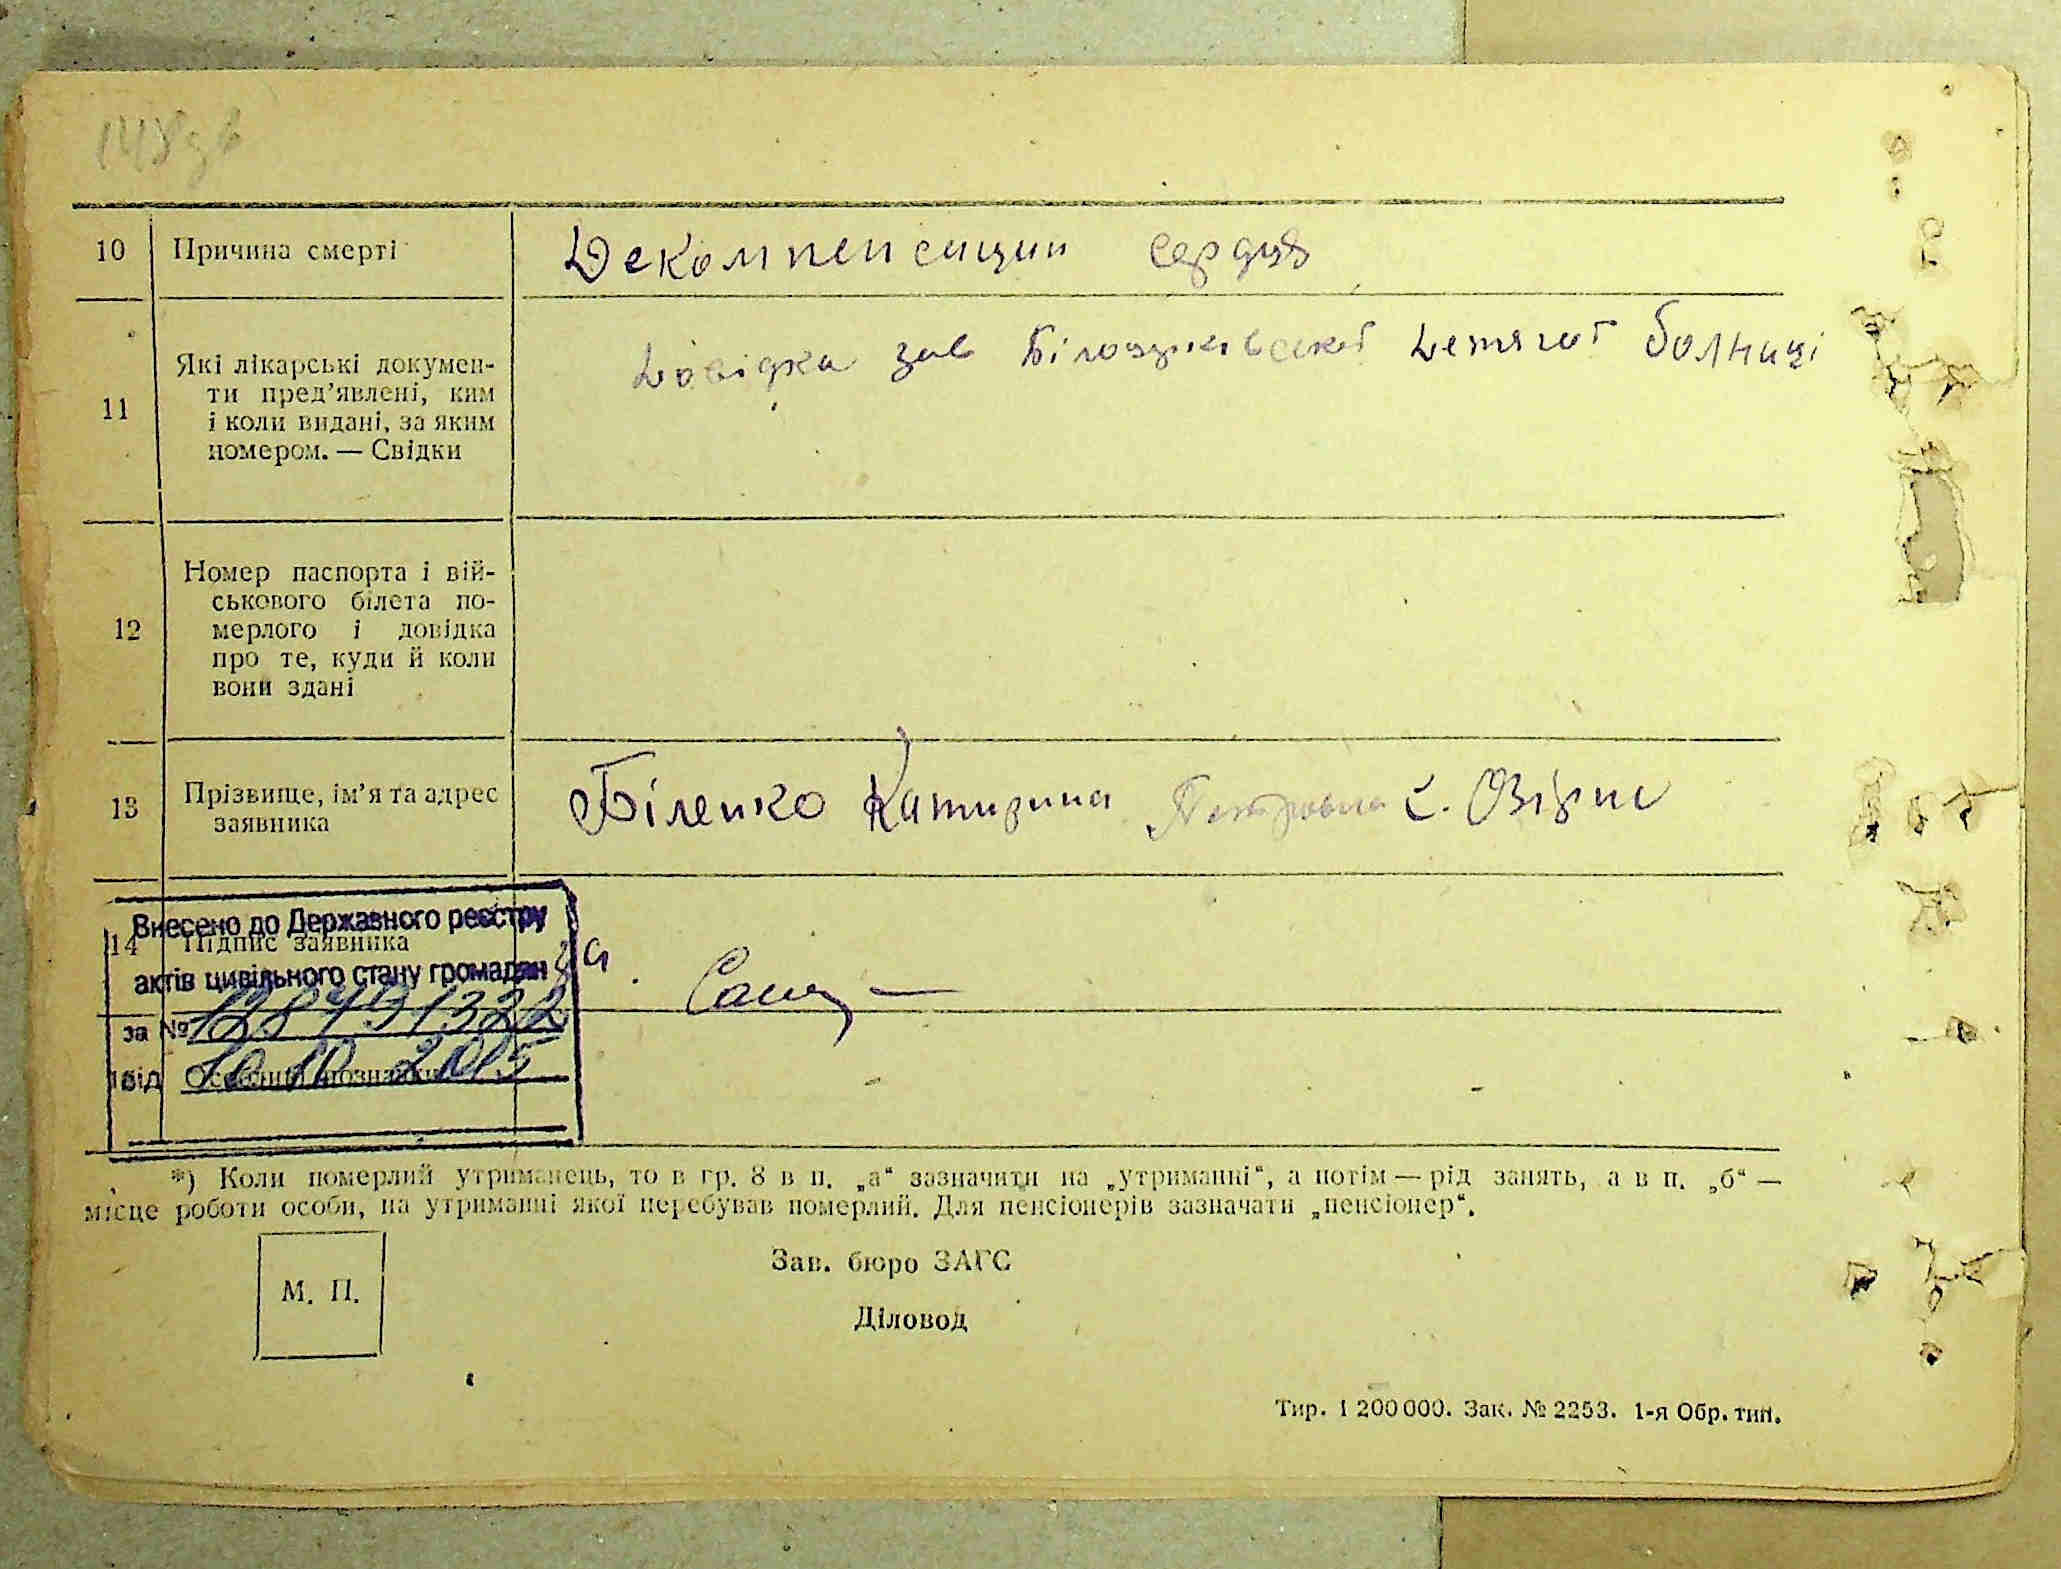 10 Причина смерті Декомпенсиции сердця
11 Які лікарські докумен-
ти пред'явлені, ким
і коли видані, за яким
номером. — Свідки
Довідка зав болниці
12 Номер паспорта і вій-
ськового білета по-
мерлого і довідка
про те, куди й коли
вони здані
13 Прізвище, ім'я та адрес
заявника
Біленко Катирина Петровна с.
14 Підпис заявника
Внесено до Державного реєстру
актів цивільного стану громадян
за №
від 10 10 2015
*) Коли померлий утриманець, то в гр. 8 в п. „а“ зазначити на „утриманні“, а потім — рід занять, а в п. „б“ —
місце роботи особи, на утриманні якої перебував померлий. Для пенсіонерів зазначати „пенсіонер“.
М. П.
Зав. бюро ЗАГС
Діловод
Тир. 1 200 000. Зак. № 2253. 1-я Обр. тип.